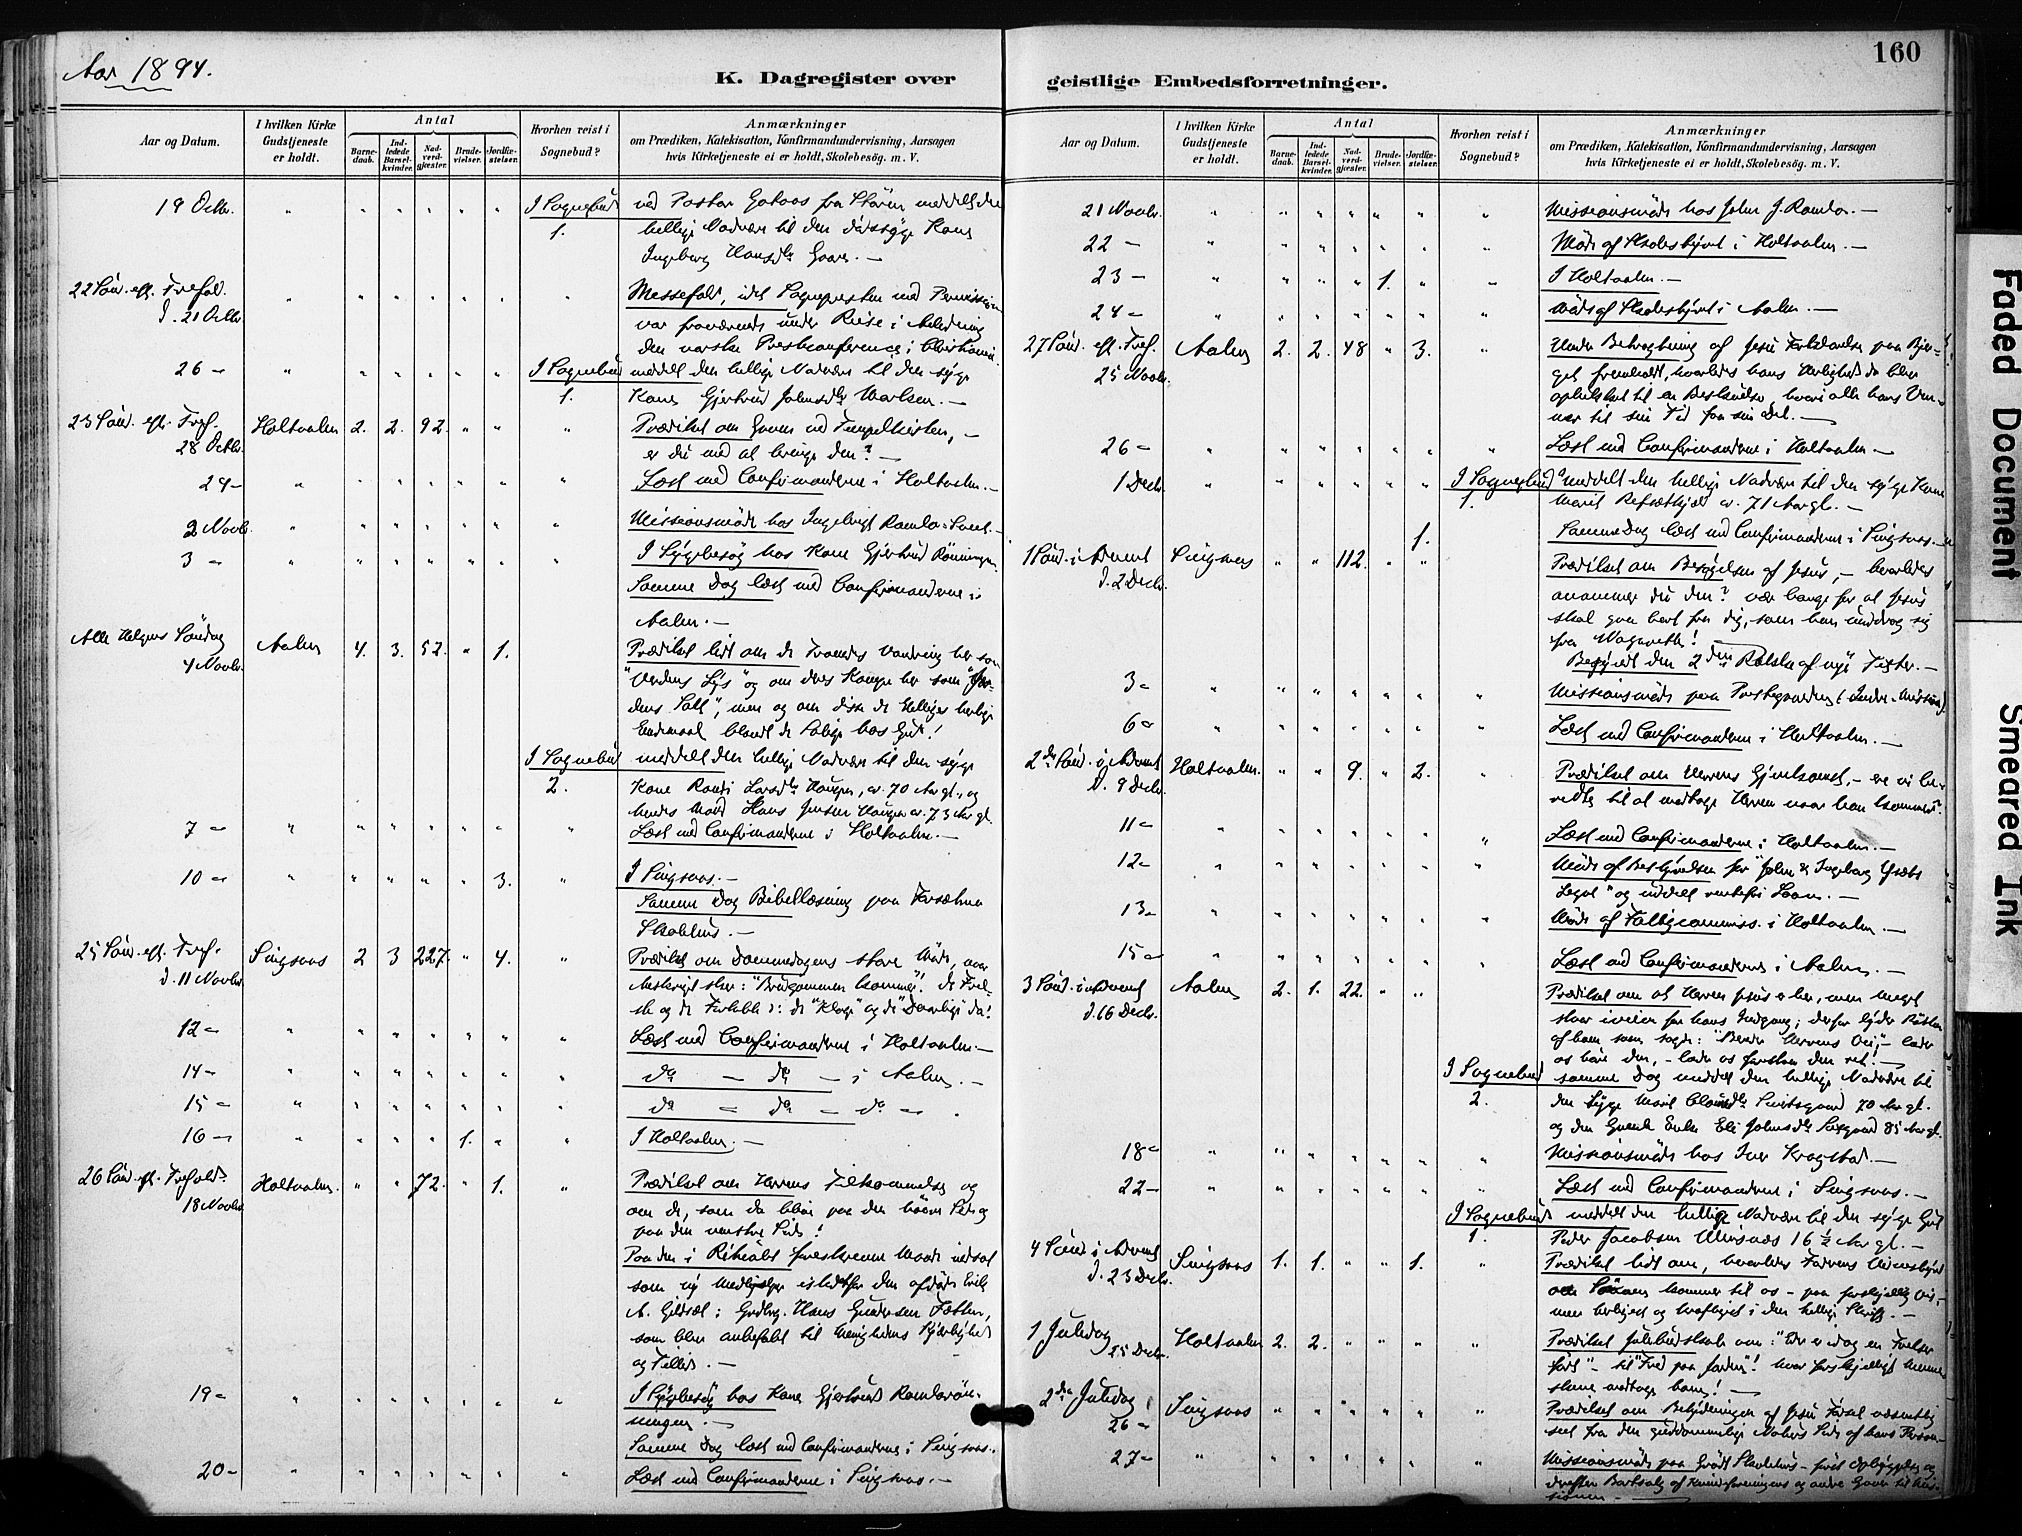 Aar 1894.
K. Dagregister over
Aar og Datum.
I hvilken Kirke Gudstjeneste er holdt.
Antal
Barnedaab.
Indledede Barselkvinder.
Nadverdgjester.
Brudevielser.
Jordfæstelser.
Hvorhen reist i Sognebud?
Anmærkninger
om Prædiken, Katekisation, Konfirmandundervisning, Aarsagen
hvis Kirketjeneste ei er holdt, Skolebesög. m. V.
19 Octbr. " " " " " " I Sognebud ved Pastor fra Stören meddelt den
1. hellige Nadvere til den dödssyge Kone
Ingeborg Hansdtr
22 Sönd. eft. Trefol. " " " " " " " Messefald, idet Sognepresten med Permission
d. 21 Octbr. var fraværende under Reise i Anledning
den norske Prestkonference i Christiania
26 — " " " " " " I Sognebud meddelt den hellige Nadvere til den syge
1. Kone Gjertrud Johnsdtr
23 Sönd. eft. Tref. Holtaalen 2. 2. 92. " " " Prædiket om Gaven ved Tempelkisten, —
28 Octbr. er du med at bringe den? —
29 — " " " " " " " Læst med Confirmanderne i Holtaalen. —
2 Novbr. " " " " " " " Missionsmöde hos Ingebrigt
3 — " " " " " " " I Sygebesög hos Kone Gjertrud Rönningen.
Samme Dag læst med Confirmanderne i
Aalen. —
Alle Helgens Söndag Aalen 4. 3. 52. " 1. Prædiket lidt om de Troendes Vandring her som
4 Novbr. "Verdens Lys" og om deres Kampe her som "Jordens
Salt", men og om disse de Helliges herlige
Endemaal blandt de Salige hos Gud!
I Sognebud meddelt den hellige Nadvere til den syge
2. Kone Randi Larsdtr Haugen, ca. 70 Aar gl., og
hendes Mand Hans Jensen Haugen ca. 73 Aar gl.
7 — " " " " " " " Læst med Confirmanderne i Holtaalen. —
10 — " " " " " 3. " I Singsaas. —
Samme Dag Bibellæsning paa
Skolehus. —
25 Sönd. eft. Tref. Singsaas 2 3 227. " 4. " Prædiket om Dommedagens store Möde, naar
d. 11 Novbr. sker: "Brudgommen kommer!" de Frelste
og de Fortabte: de "Kloge" og de "Daarlige" da!
12 — " " " " " " " Læst med Confirmanderne i Holtaalen. —
14 — " " " " " " " do — do — i Aalen. —
15 — " " " " " " " do — do — do —
16 — " " " " 1. " " I Holtaalen. —
26 Sönd. eft. Trefold. Holtaalen. " " 72. " 1. " Prædiket om Herrens Tilkommelse og
18 Novbr. om de, som da blive paa den höire Side og
paa den venstre Side!
Paa den i Ritualet foreskrevne Maade indsat
som ny Medhjelper istedetfor den afdöde Erik
A. Gildset: Grdbrg. Hans Gundersen
som blev anbefalet til Menighedens Kjærlighed
og Tillid. —
19 — " " " " " " " I Sygebesög hos Kone Gjertrud Ramlorönningen.
—
Samme Dag læst med Confirmanderne i Singsaas.
20 — " " " " " " " Læst med Confirmanderne i Singsaas. —
geistlige Embedsforretninger.
160
Aar og Datum.
I hvilken Kirke Gudstjeneste er holdt.
Antal
Barnedaab.
Indledede Barselkvinder.
Nadverdgjester.
Brudevielser.
Jordfæstelser.
Hvorhen reist i Sognebud?
Anmærkninger
om Prædiken, Katekisation, Konfirmandundervisning, Aarsagen
hvis Kirketjeneste ei er holdt, Skolebesög. m. V.
21 Novbr. " " " " " " " Missionsmöde hos John J. Ramlo. —
22 — " " " " " " Möde af Skolestyret i Holtaalen. —
23 — " " " " 1. " " I Holtaalen. —
24 — " " " " " " " Möde af Skolestyret i Aalen. —
27 Sönd. eft. Tref. Aalen 2. 2. 48 " 3. " Under Betragtning af Jesu Forklarelse paa Bjerget
25 Novbr. fremholdt, hvorledes hans Herlighed da blev
en Beskuelse, hvori alle hans Venner
til sin Tid faa sin Del. —
26 — " " " " " " " Læst med Confirmanderne i Holtaalen —
1 Decbr. " " " " " " I Sognebud meddelt den hellige Nadvere til den syge
1. Marit ca. 71 Aar gl. —
1. Samme Dag læst med Confirmanderne i Singsaas. —
1 Sönd. i Advent Singsaas " " 112. " " Prædiket om af Jesus, — hvorledes
d. 2 Decbr. du den? vær bange for at Jesus
skal gaa bort fra dig, som han unddrog sig
fra Nazareth!
den 2den Række af nye Texter. —
3 — " " " " " " " Missionsmöde paa Prestegaarden (Indre-Mission)
6 — " " " " " " " Læst med Confirmanderne i Holtaalen. —
2den Sönd. i Advent Holtaalen. " " 9. " 2. " Prædiket om Herrens Gjenkomst, — ere vi beredte
d. 9 Decbr. til at modtage Herren naar han kommer?
11 — " " " " " " " Læst med Confirmanderne i Holtaalen. —
12 — " " " " " " " Möde af Bestyrelsen for "John & Ingeborg
Legat" og uddelt rentefri Laan. —
13 — " " " " " " " Möde af i Holtaalen. —
15 — " " " " " " " Læst med Confirmanderne i Aalen. —
3 Sönd. i Advent Aalen 2. 1. 22. " " Prædiket om at Herren Jesus er her, men meget
d. 16 Decbr. staar iveien for hans Indgang; derfor lyder Rösten
af ham som sagde: "Bered Herrens Vei," — lader
os höre den, — lade os forstaa den ret! —
I Sognebud samme Dag meddelt den hellige Nadvere til
2. den syge Marit 70 Aar gl.
og den Enke Eli Johnsdtr 85 Aar gl.
18 — " " " " " " " Missionsmöde hos Iver Kragstad. —
22 — " " " " " " " Læst med Confirmanderne i Singsaas. —
I Sognebud meddelt den hellige Nadvere til den syge Gut
1. Peder Jacobsen 16 ½ Aar gl. —
4 Sönd. i Advent Singsaas 1. 1. " " 1. Prædiket lidt om, hvorledes Faderens Vidnesbyrd
d. 23 Decbr. om Sönnen kommer til os — paa forskjellig Vis, —
men og i den hellige Skrift. —
1 Juledag Holtaalen 2. 2. " " " " Prædiket Julebudskab om: "Der er idag en Frelser
25 Decbr. födt" — til "Fred paa Jorden"! hvor forskjelligt Menneskene
modtage ham! —
2den Juledag Singsaas " " " " " " Prædiket om Betydningen af Jesu Födsel væsentlig
26 — seet fra den guddommelige Naturs Side af hans Person —
27 — " " " " " " " Missionsmöde paa Skolehus —
derefter af Kvindeforeningens og andre Gaver til Missionen. —
Faded Document
Smeared Ink